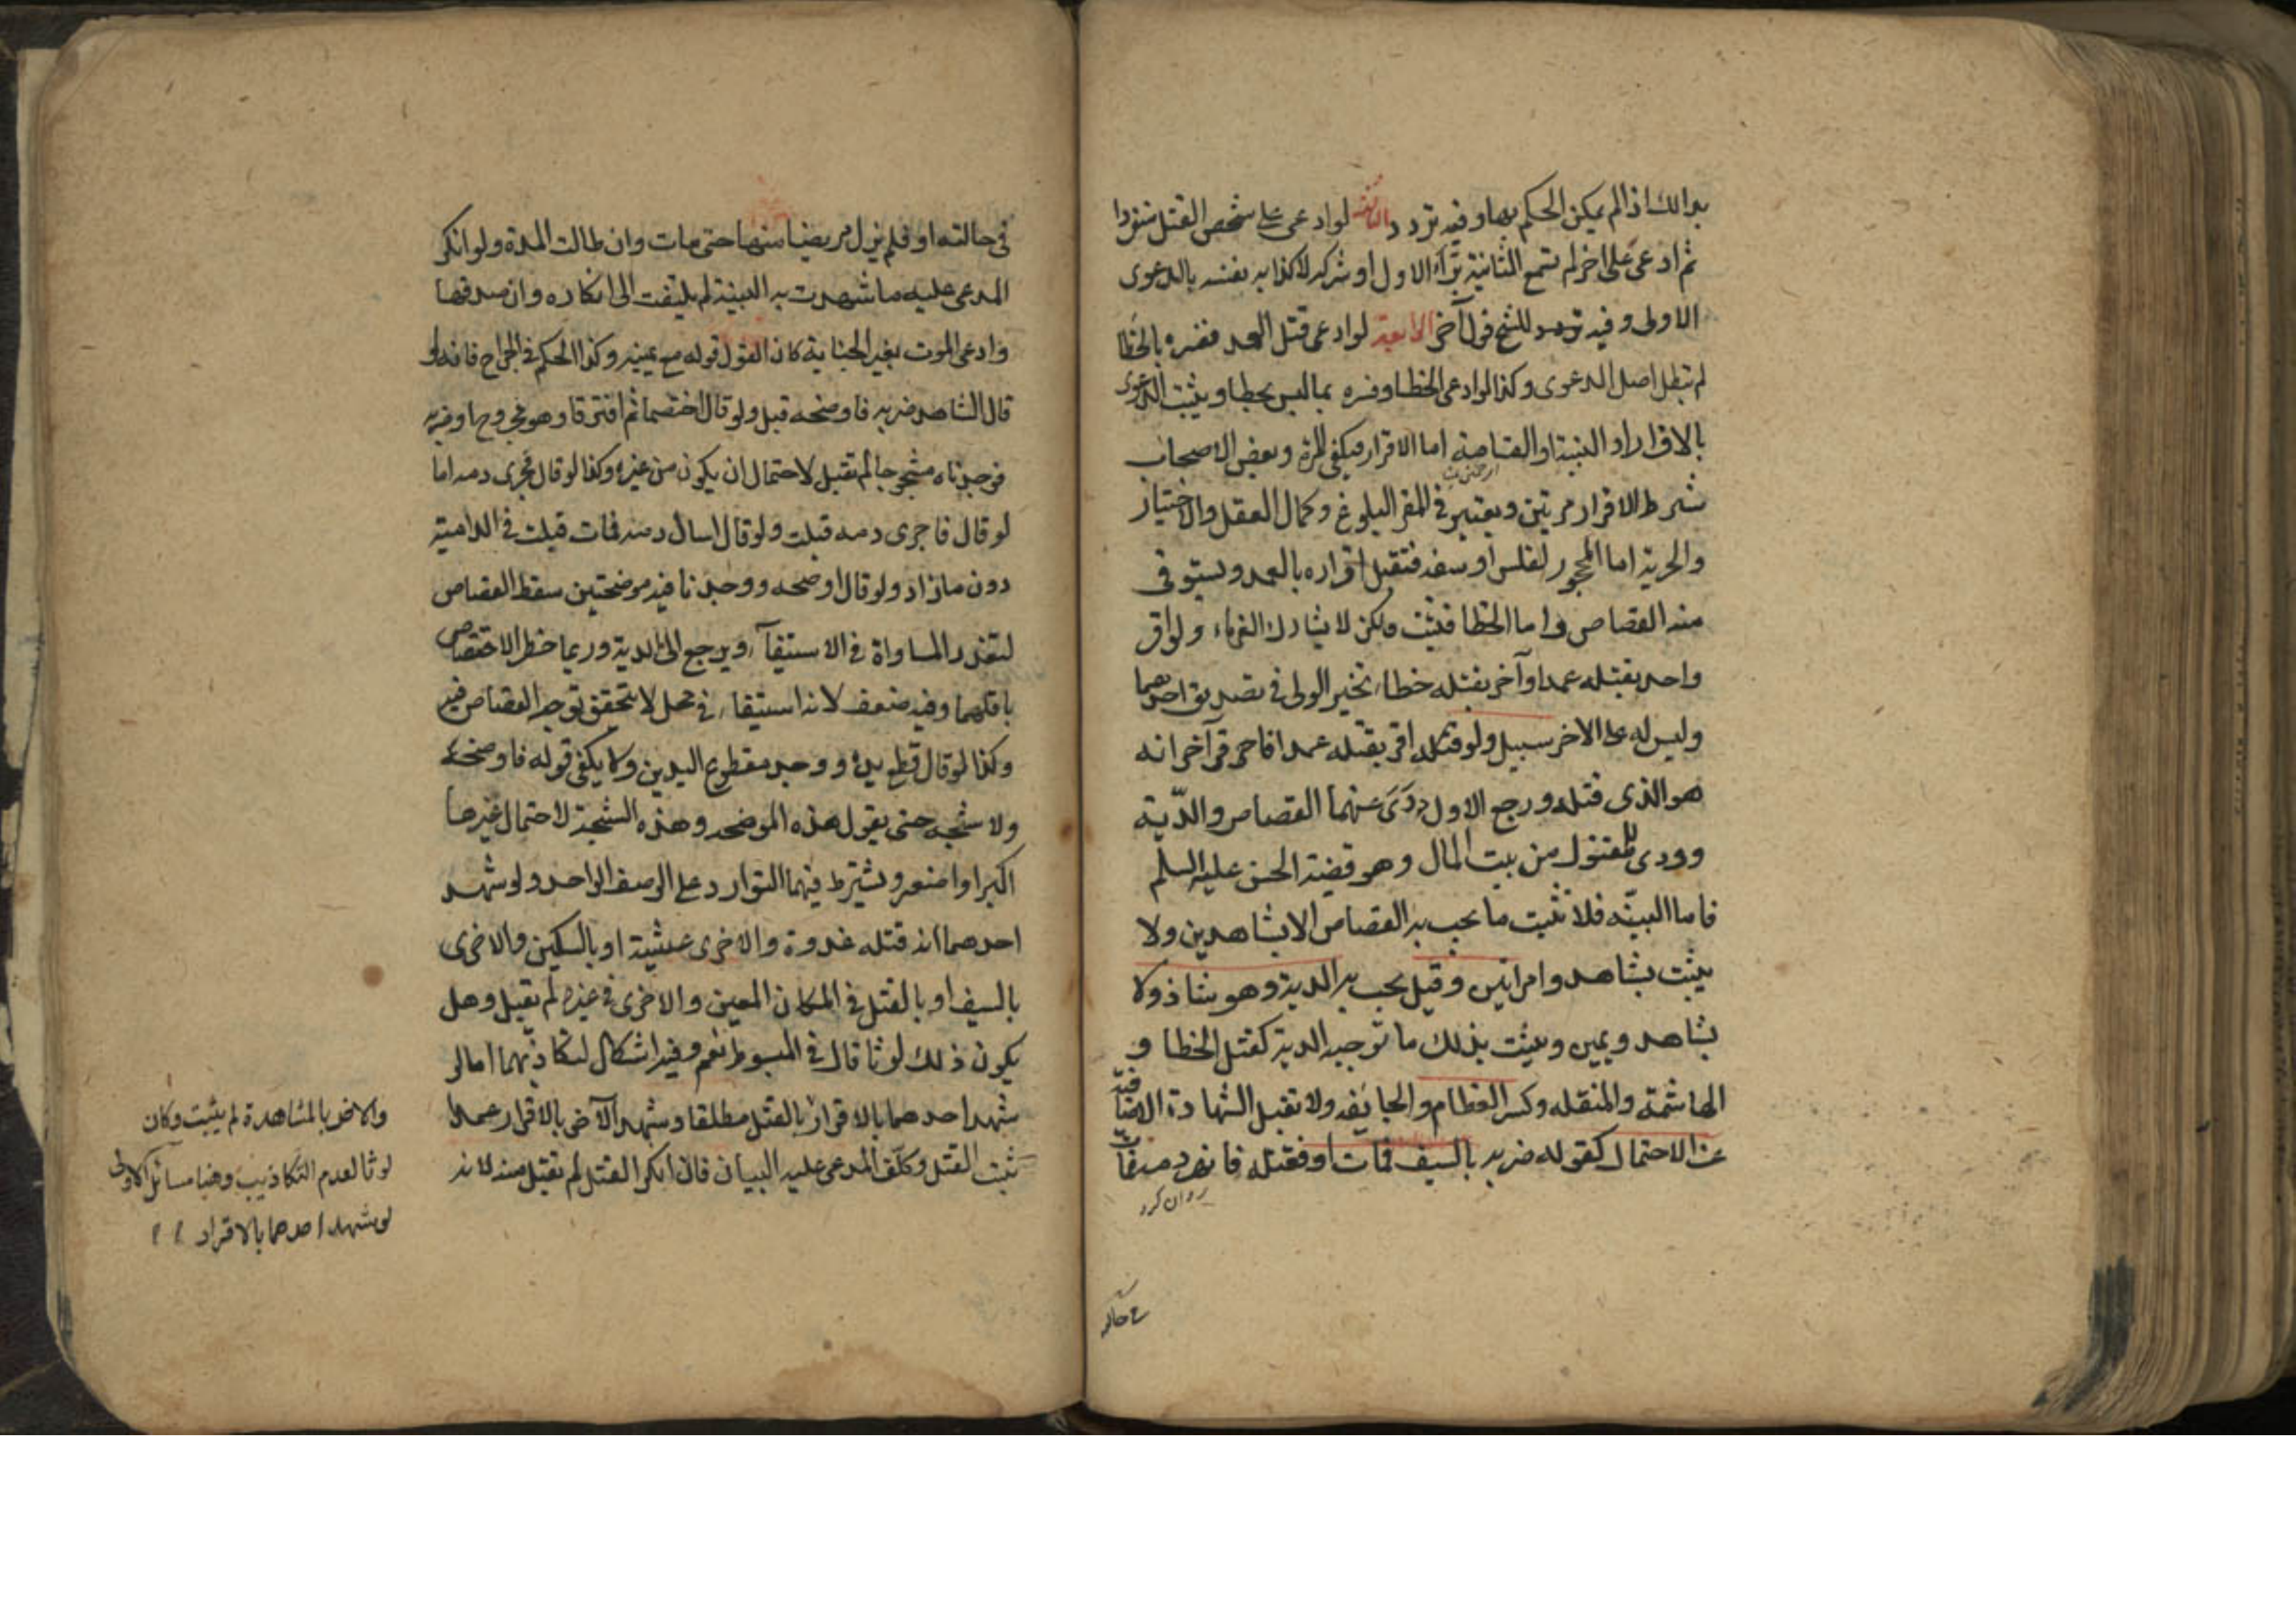 بذلك اذ لم يمكن الحكم بها وفيه تردد الثالثة لو ادعى على شخص القتل منفردا
ثم ادعى على اخر لم تسمع الثانية برّأ الاول او شركه لاكذابه نفسه بالدعوى
الاولى وفيه تردد للشيخ قول آخر الرابعة لو ادعى قتل العمد ففسره بالخطا
لم تبطل اصل الدعوى وكذا لو ادعى الخطا وفسره بما ليس بخطا ويثبت الدعوى
بالاقرار او البينة او القسامة اما الاقرار فيكفى المرة وبعض الاصحاب
شرط الاقرار مرتين ويعتبر فى المقر البلوغ وكمال العقل والاختيار
والحرية اما المحجور لفلس او سفه فتقبل اقراره بالعمد ويستوفى
منه القصاص واما الخطا فيثبت ولكن لا يشارك الغرماء ولو اقر
واحد بقتله عمدا وآخر بقتله خطاء تخير الولى فى تصديق احدهما
وليس له على الاخر سبيل ولو اقر بقتله عمدا فاقر آخر انه
هو الذى قتله ورجع الاول درئ عنهما القصاص والدّية
وودى المقتول من بيت المال وهو قضية الحسن عليه السلم
فاما البينّه فلا يثبت ما يجب به القصاص الا بشاهدين ولا
يثبت بشاهد وامراتين وقيل يجب به الدية وهو شاذ ولا
بشاهد ويمين ويثبت بذلك ما توجبه الدية كقتل الخطا و
الهاشمة والمنقله وكسر العظام والجايفه ولا تقبل الشهادة الا صافية
عن الاحتمال كقوله ضربه بالسيف فمات او فقتله فانهر دمه فمات
روان كرد
فى حالته
فى حالته او فلم يزل مريضا منها حتى مات وان طالت المدة ولو انكر
المدعى عليه ما شهدت به البينة لم يلتفت الى انكاره وان صدقها
وادعى الموت بغير الجناية كان القول قوله مع يمينه وكذا الحكم فى الجراح فانه لو
قال الشاهد ضربه فاوضحه قبل ولو قال اختصما ثم افترقا وهو مجروح او ضربه
فوجدناه مشجوجا لم تقبل لاحتمال ان يكون من غيره وكذا لو قال فجرى دمه اما
لو قال فاجرى دمه قبلت ولو قال اسال دمه فمات قبلت فى الدامية
دون ما زاد ولو قال اوضحه ووجدنا فيه موضحتين سقط القصاص
لتعذر المساواة فى الاستيفآء ويرجع الى الدية وربما خطر الاقتصاص
باقلهما وفيه ضعف لانه استيفاء فى محل لا يتحقق توجه القصاص فيه
وكذا لو قال قطع يده ووجد مقطوع اليدين ولا يكفى قوله فاوضحه
ولا شجه حتى يقول هذه الموضحه وهذه الشجة لاحتمال غيرها
اكبر او اصغر ويشترط فيهما التوارد على الوصف الواحد ولو شهد
احدهما انه قتله غدوة والاخرى عشية او بالسكين والاخرى
بالسيف او بالقتل فى المكان المعين والاخرى فى غيره لم تقبل وهل
يكون ذلك لوثا قال فى المبسوط نعم وفيه اشكال لتكاذبهما اما لو
شهد احدهما بالاقرار بالقتل مطلقا وشهد الآخر بالاقرار عمدا
ثبت القتل وكلّف المدعى عليه البيان فان انكر القتل لم تقبل منه لانه
والاخر بالمشاهدة لم يثبت وكان
لوثا لعدم التكاذيب وهنا مسائل الاولى
لو شهد احدهما بالاقرار